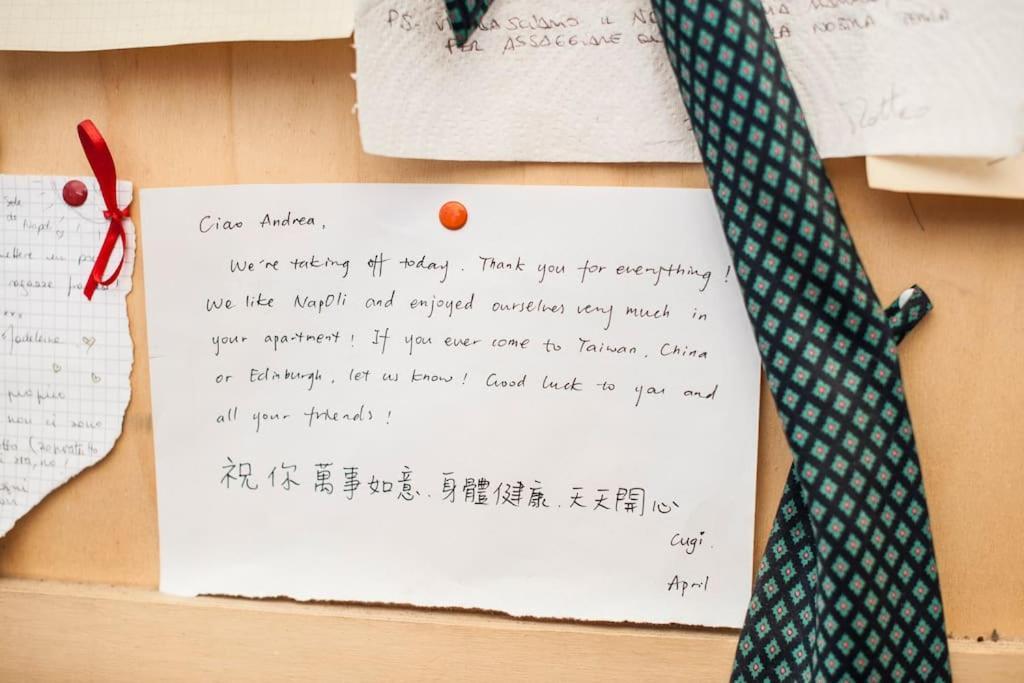 PS.
PER ASSAGGIARE
NOSTRA
Matteo
Napoli
ragazze
Madeleine
proprio
non ci sono
Ciao Andrea,
We're taking off today. Thank you for everything!
We like NapOli and enjoyed ourselves very much in
your apartment! If you ever come to Taiwan, China
or Edinburgh, let us know! Good luck to you and
all your friends!
祝你萬事如意.身體健康.天天開心
Cugi.
April